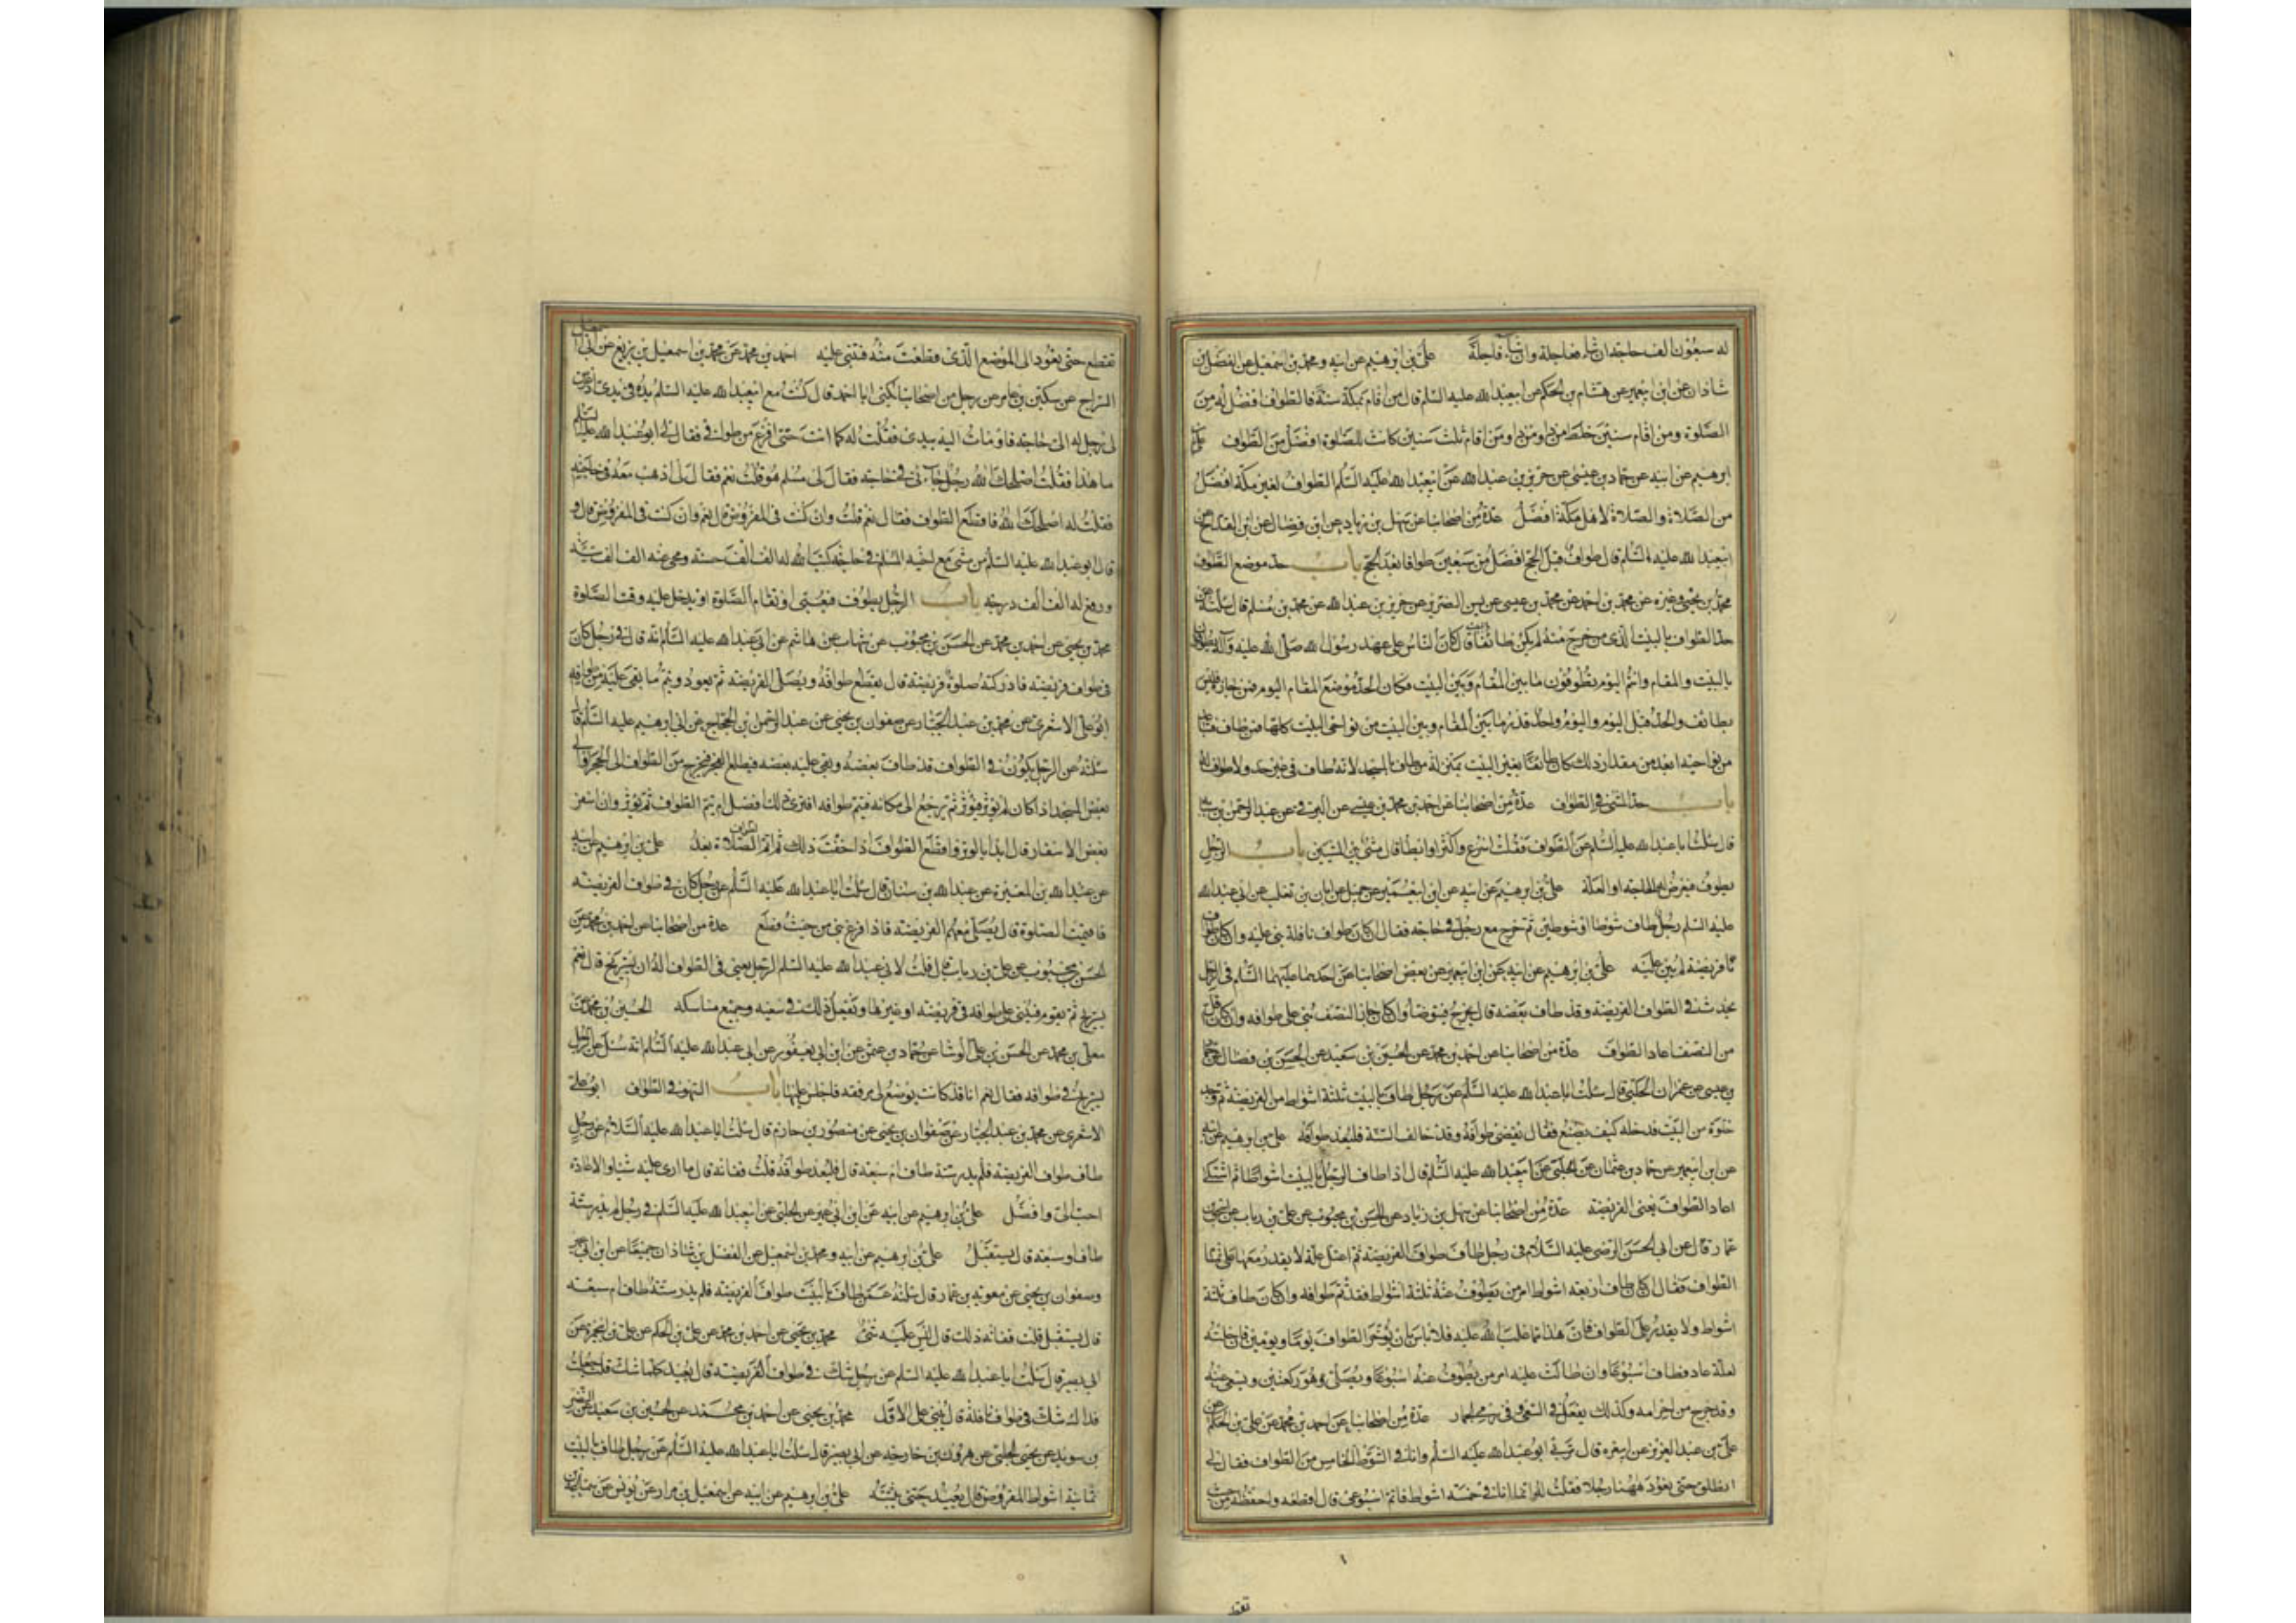 له سبعون الف حاجة ان شاء فعاجلة وان شاء فاجلة علي بن ابرهيم عن ابيه ومحمد بن اسمعيل عن الفضل بن
شاذان عن ابن ابيعمير عن هشام بن الحكم عن ابيعبدالله عليه السلم قال من اقام بمكة سنة فالطواف افضل له من
الصلوة ومن اقام سنتين خلط من ذا ومن ذا ومن اقام ثلث سنين كانت الصلوة افضل من الطواف علي بن
ابرهيم عن ابيه عن حماد بن عيسى عن حريز بن عبدالله عن ابيعبدالله عليه السلم الطواف لغير مكة افضل
من الصلاة والصلاة لاهل مكة افضل عدة من اصحابنا عن سهل بن زياد عن ابن فضال عن ابن القداح عن
ابيعبدالله عليه السلم قال طواف قبل الحج افضل من سبعين طوافا بعد الحج باب حد موضع الطواف
محمد بن يحيى وغيره عن محمد بن احمد عن محمد بن عيسى عن يس الضرير عن حريز بن عبدالله عن محمد بن مسلم قال سئلته عن
حد الطواف بالبيت الذى من خرج منه لم يكن طائفا بالبيت قال كان الناس على عهد رسول الله صلى الله عليه وآله يطوفون
بالبيت والمقام وانتم اليوم تطوفون ما بين المقام وبين البيت فكان الحد موضع المقام اليوم فمن جازه فليس
بطائف والحد قبل اليوم واليوم واحد قدر ما بين المقام وبين البيت من نواحى البيت كلها فمن طاف فتباعد
من نواحيه ابعد من مقدار ذلك كان طائفا بغير البيت بمنزلة من طاف بالمسجد لانه طاف فى غير حد ولا طواف له
باب حد المشى فى الطواف عدة من اصحابنا عن احمد بن محمد بن عيسى عن البرقى عن عبدالرحمن بن سيابة
قال سئلت اباعبدالله عليه السلم عن الطواف فقلت اسرع واكثر او ابطا قال مشى بين المشيين باب الرجل
يطوف فتعرض له الحاجة او العلة علي بن ابرهيم عن ابيه عن ابن ابيعمير عن جميل عن ابان بن تغلب عن ابى عبدالله
عليه السلم رجل طاف شوطا او شوطين ثم خرج مع رجل فى حاجة فقال ان كان طواف نافلة بنى عليه وان كان طواف
فريضة لم يبن عليه علي بن ابرهيم عن ابيه عن ابن ابيعمير عن بعض اصحابنا عن احدهما عليهما السلم فى الرجل
يحدث فى الطواف الفريضة وقد طاف بعضه قال يخرج فيتوضأ وان كان جاز النصف بنى على طوافه وان كان اقل
من النصف اعاد الطواف عدة من اصحابنا عن احمد بن محمد عن الحسين بن سعيد عن الحسن بن فضال عن حماد
بن عيسى عن عمران الحلبى قال سئلت اباعبدالله عليه السلم عن رجل طاف بالبيت ثلثة اشواط من الفريضة ثم وجد
خلوة من البيت فدخله كيف يصنع فقال يقضى طوافه وقد خالف السنة فليعد طوافه علي بن ابرهيم عن ابيه
عن ابن ابيعمير عن حماد بن عثمان عن الحلبى عن ابيعبدالله عليه السلم قال اذا طاف الرجل بالبيت اشواطا ثم اشتكى
اعاد الطواف يعنى الفريضة عدة من اصحابنا عن سهل بن زياد عن الحسن بن محبوب عن على بن رياب عن اسحق بن
عمار قال عن ابى الحسن الرضى عليه السلام فى رجل طاف طواف الفريضة ثم اعتل علة لا يقدر معها على تمام
الطواف فقال ان كان طاف اربعة اشواط امر من يطوف عنه ثلثة اشواط فقد تم طوافه وان كان طاف ثلثة
اشواط ولا يقدر على الطواف فان هذا مما غلب الله عليه فلا باس بان يؤخر الطواف يوما ويومين فان خلته
لعلة عاد فطاف اسبوعا وان طالت عليه امر من يطوف عنه اسبوعا ويصلى هو ركعتين ويسعى عنه
وقد خرج من احرامه وكذلك يفعل فى السعى وفى رمى الجمار عدة من اصحابنا عن احمد بن محمد عن على بن الحكم عن
على بن عبدالعزيز عن ابى عزه قال مر بى ابوعبدالله عليه السلم وانا فى الشوط الخامس من الطواف فقال لى
انطلق حتى نعود ههنا رجلا فقلت له انما انا فى خمسة اشواط فاتم اسبوعى قال اقطعه واحفظه من حيث
تقطع
تقطع حتى تعود الى الموضع الذى قطعت منه فتبنى عليه احمد بن محمد عن محمد بن اسمعيل بن بزيع عن ابى اسمعيل
السراج عن سكين بن عمار عن رجل من اصحابنا يكنى ابا احمد قال كنت مع ابيعبدالله عليه السلم يده فى يدى اذ عرض
لى رجل له الى حاجة فاومات اليه بيدى فقلت له كما انت حتى افرغ من طوافى فقال لى ابوعبدالله عليه السلم
ما هذا فقلت اصلحك الله رجل جاءنى فى حاجة فقال لى مسلم هو قلت نعم فقال لى اذهب معه فى حاجته
فقلت له اصلحك الله فاقطع الطواف فقال نعم قلت وان كنت فى المفروض قال نعم وان كنت فى المفروض قال و
قال ابوعبدالله عليه السلم من مشى مع اخيه المسلم فى حاجة كتب الله له الف الف حسنة ومحى عنه الف الف سيئة
ورفع له الف الف درجة باب الرجل يطوف فيعيى او تقام الصلوة او يدخل عليه وقت الصلوة
محمد بن يحيى عن احمد بن محمد عن الحسن بن محبوب عن شهاب عن هاشم عن ابى عبدالله عليه السلم انه قال فى رجل كان
فى طواف فريضة فادركته صلوة فريضة قال يقطع طوافه ويصلى الفريضة ثم يعود ويتم ما بقى عليه من طوافه
ابوعلى الاشعرى عن محمد بن عبدالجبار عن صفوان بن يحيى عن عبدالرحمن بن الحجاج عن ابى ابرهيم عليه السلم قال
سئلته عن الرجل يكون فى الطواف قد طاف بعضه وبقى عليه بعضه فيطلع الفجر فيخرج من الطواف الى الحجر او الى
بعض المسجد اذا كان لم يوتر فيوتر ثم يرجع الى مكانه فيتم طوافه افترى ذلك افضل ام يتم الطواف ثم يوتر وان اسفر
بعض الاسفار قال ابدا بالوتر واقطع الطواف اذا خفت ذلك ثم اتم الطواف بعد علي بن ابرهيم عن ابيه
عن عبدالله بن المغيرة عن عبدالله بن سنان قال سئلت اباعبدالله عليه السلم عن رجل كان فى طواف الفريضة
فاقيمت الصلوة قال يصلى معهم الفريضة فاذا فرغ بنى من حيث قطع عدة من اصحابنا عن احمد بن محمد عن
الحسن بن محبوب عن على بن رياب قال قلت لابى عبدالله عليه السلم الرجل يعيى فى الطواف اله ان يستريح قال نعم
يستريح ثم يقوم فيبنى على طوافه فى فريضة او غيرها ويفعل ذلك فى سعيه وجميع مناسكه الحسين بن محمد عن
معلى بن محمد عن الحسن بن على الوشا عن حماد بن عثمن عن ابن ابى يعفور عن ابى عبدالله عليه السلم انه سئل عن الرجل
يستريح فى طوافه فقال نعم انا قد كانت توضع لى مرفقة فاجلس عليها باب السهو فى الطواف ابوعلى
الاشعرى عن محمد بن عبدالجبار عن صفوان بن يحيى عن منصور بن حازم قال سئلت اباعبدالله عليه السلام عن رجل
طاف طواف الفريضة فلم يدر ستة طاف ام سبعة قال فليعد طوافه قلت ففاته قال ما ارى عليه شيئا والاعادة
احب الى وافضل علي بن ابرهيم عن ابيه عن ابن ابى عمير عن الحلبى عن ابيعبدالله عليه السلم فى رجل لم يدر ستة
طاف او سبعة قال يستقبل علي بن ابرهيم عن ابيه ومحمد بن اسمعيل عن الفضل بن شاذان جميعا عن ابن ابى عمير
وصفوان بن يحيى عن معوية بن عمار قال سئلته عمن طاف بالبيت طواف الفريضة فلم يدر ستة طاف ام سبعة
قال يستقبل قلت ففاته ذلك قال ليس عليه شئ محمد بن يحيى عن احمد بن محمد عن على بن الحكم عن على بن ابيحمزة عن
ابى بصير قال سئلت اباعبدالله عليه السلم عن رجل شك فى طواف الفريضة قال يعيد كلما شك قلت جعلت
فداك شك فى طواف نافلة قال يبنى على الاقل محمد بن يحيى عن احمد بن محمد عن الحسين بن سعيد عن النضر
بن سويد عن يحيى الحلبى عن هرون بن خارجه عن ابى بصير قال سئلت اباعبدالله عليه السلم عن رجل طاف بالبيت
ثمانية اشواط المفروض قال يعيد حتى يثبته علي بن ابرهيم عن ابيه عن اسمعيل بن مرار عن يونس عن سماعة بن